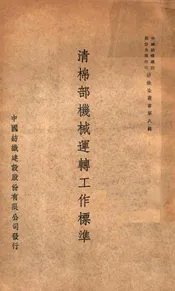 清棉部機械運轉工作標準
中國紡織建設股份有限公司發行